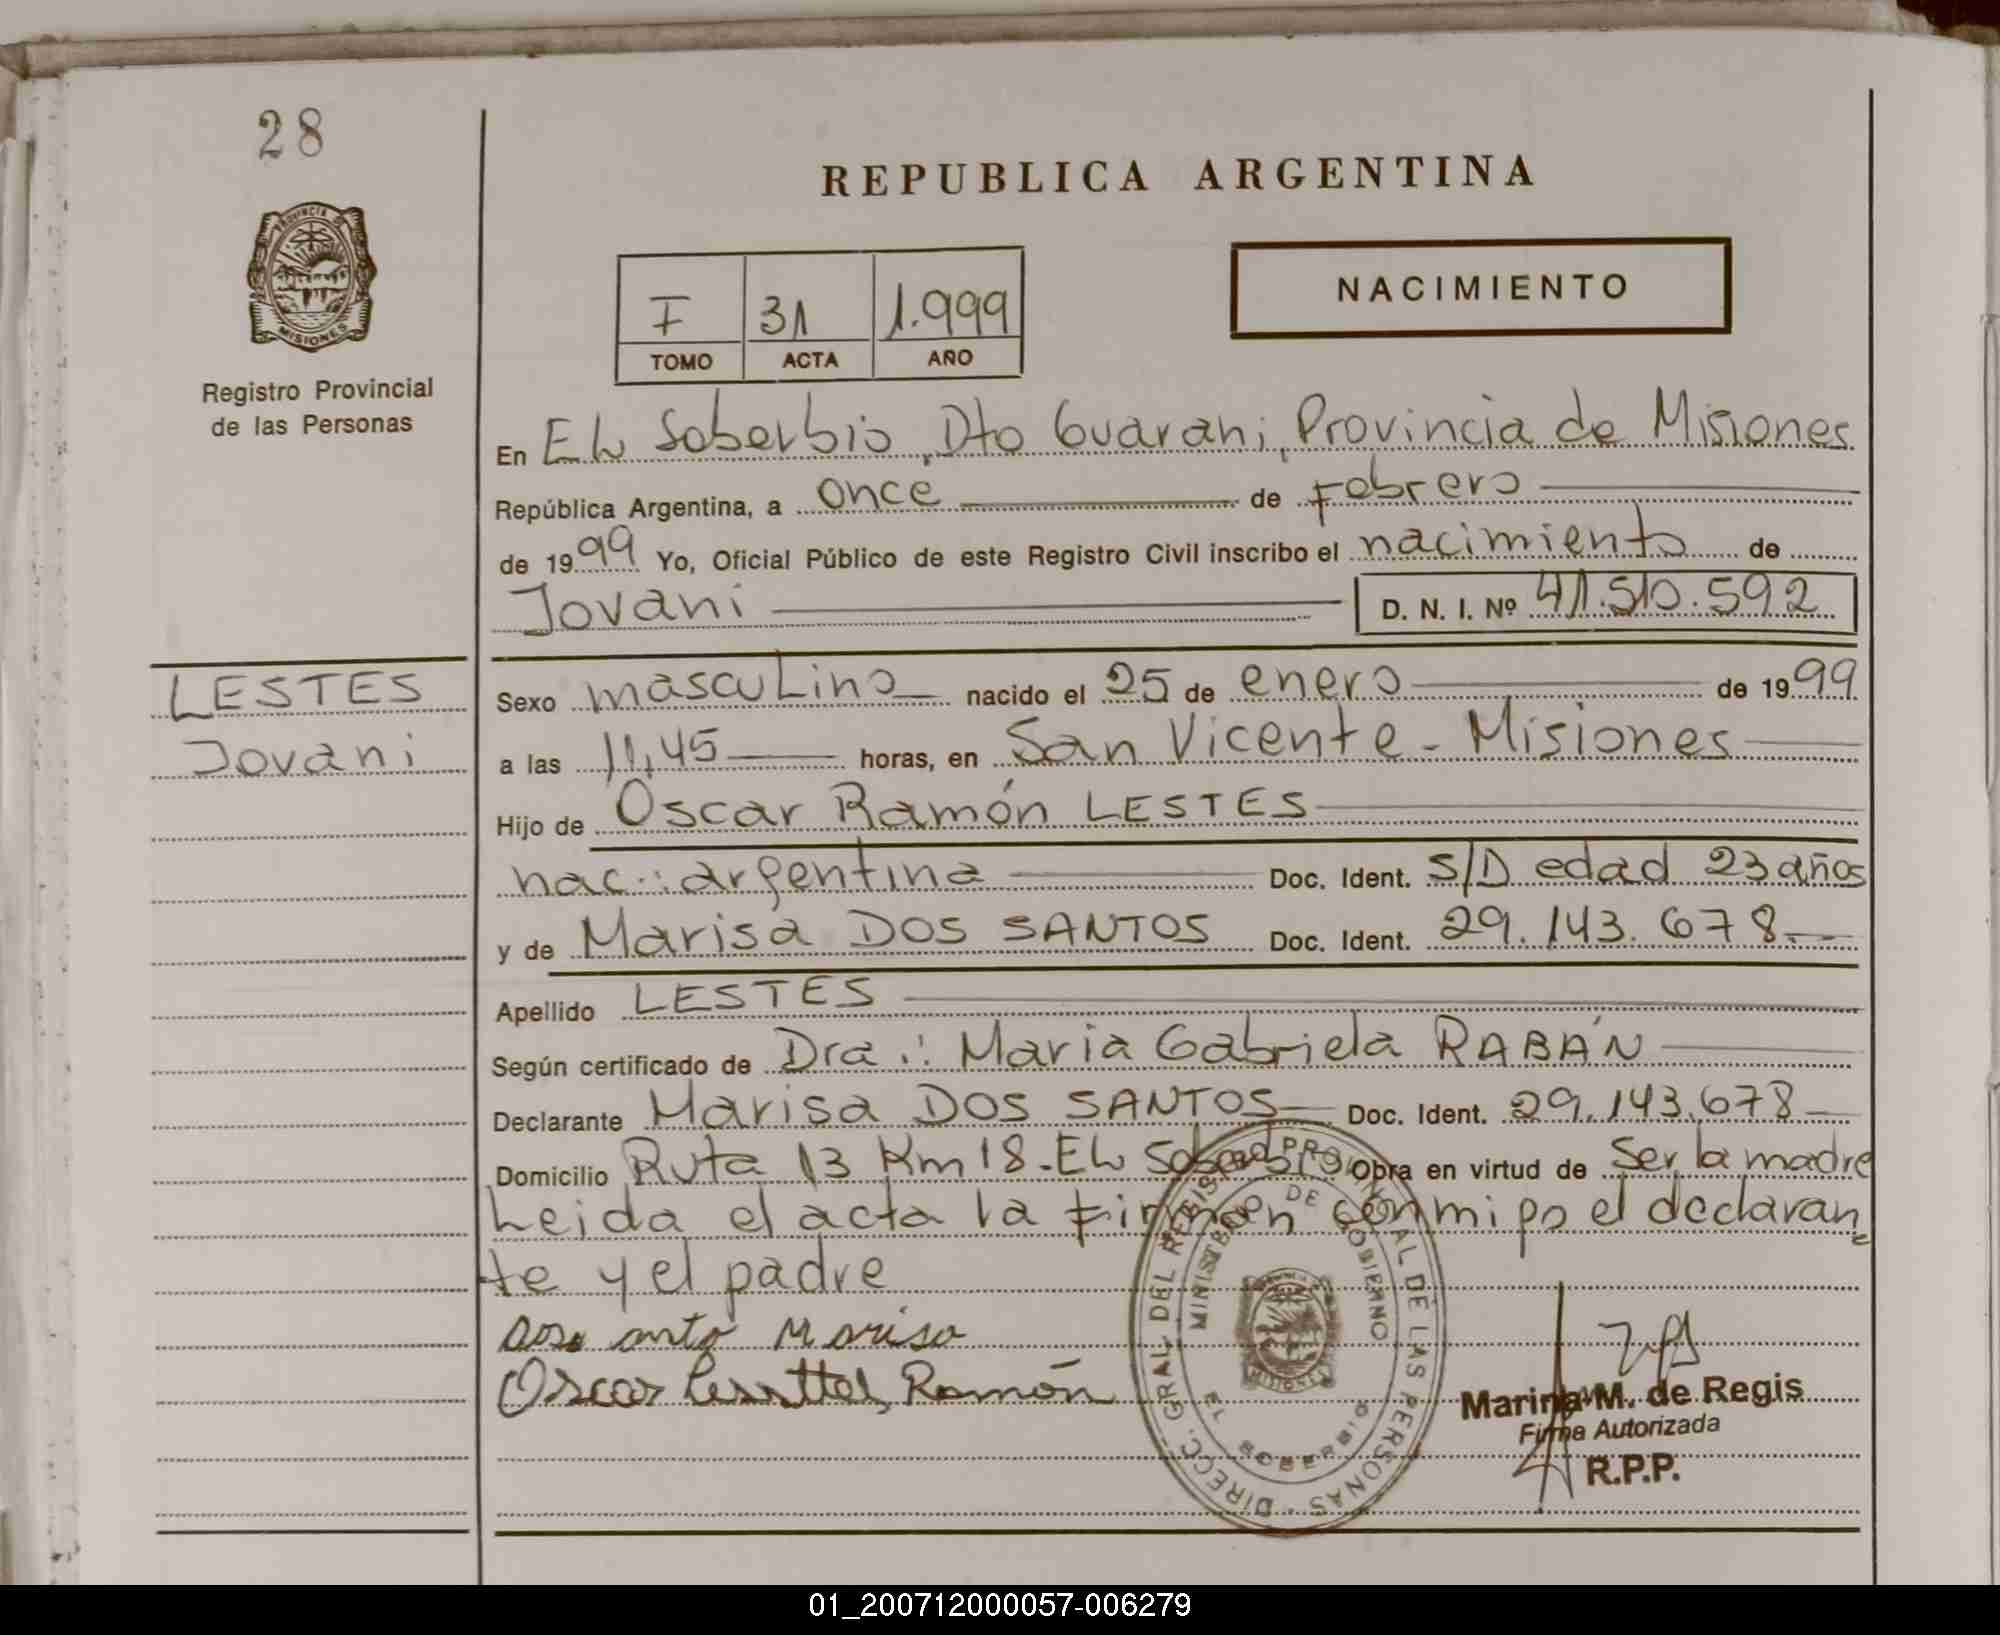 28
REPUBLICA ARGENTINA
PROVINCIA DE
MISIONES
Registro Provincial
de las Personas
I 31 1.999
TOMO ACTA AÑO
NACIMIENTO
En EL Soberbio, Dto Guarani, Provincia de Misiones
República Argentina, a once de Febrero
de 1999 Yo, Oficial Público de este Registro Civil inscribo el nacimiento de
Jovani D. N. I. Nº 41.510.592
LESTES
Jovani
Sexo mascuLino nacido el 25 de enero de 1999
a las 11,45 horas, en San Vicente - Misiones
Hijo de Oscar Ramón LESTES
nac.: argentina Doc. Ident. S/D edad 23 años
y de Marisa DOS SANTOS Doc. Ident. 29.143.678.
Apellido LESTES
Según certificado de Dra.: Maria Gabriela RABÁN
Declarante Marisa DOS SANTOS Doc. Ident. 29.143.678
Domicilio Ruta 13 Km 18. EL Soberbio Obra en virtud de Ser la madre
Leida el acta la firman conmigo el declaran
te y el padre
Marisa
Oscar Ramón
DIRECC. GRAL. DEL REGISTRO PROVINCIAL DE LAS PERSONAS
MINISTERIO DE GOBIERNO
EL SOBERBIO
MISIONES
Marina M. de Regis
Firma Autorizada
R.P.P.
01_200712000057-006279